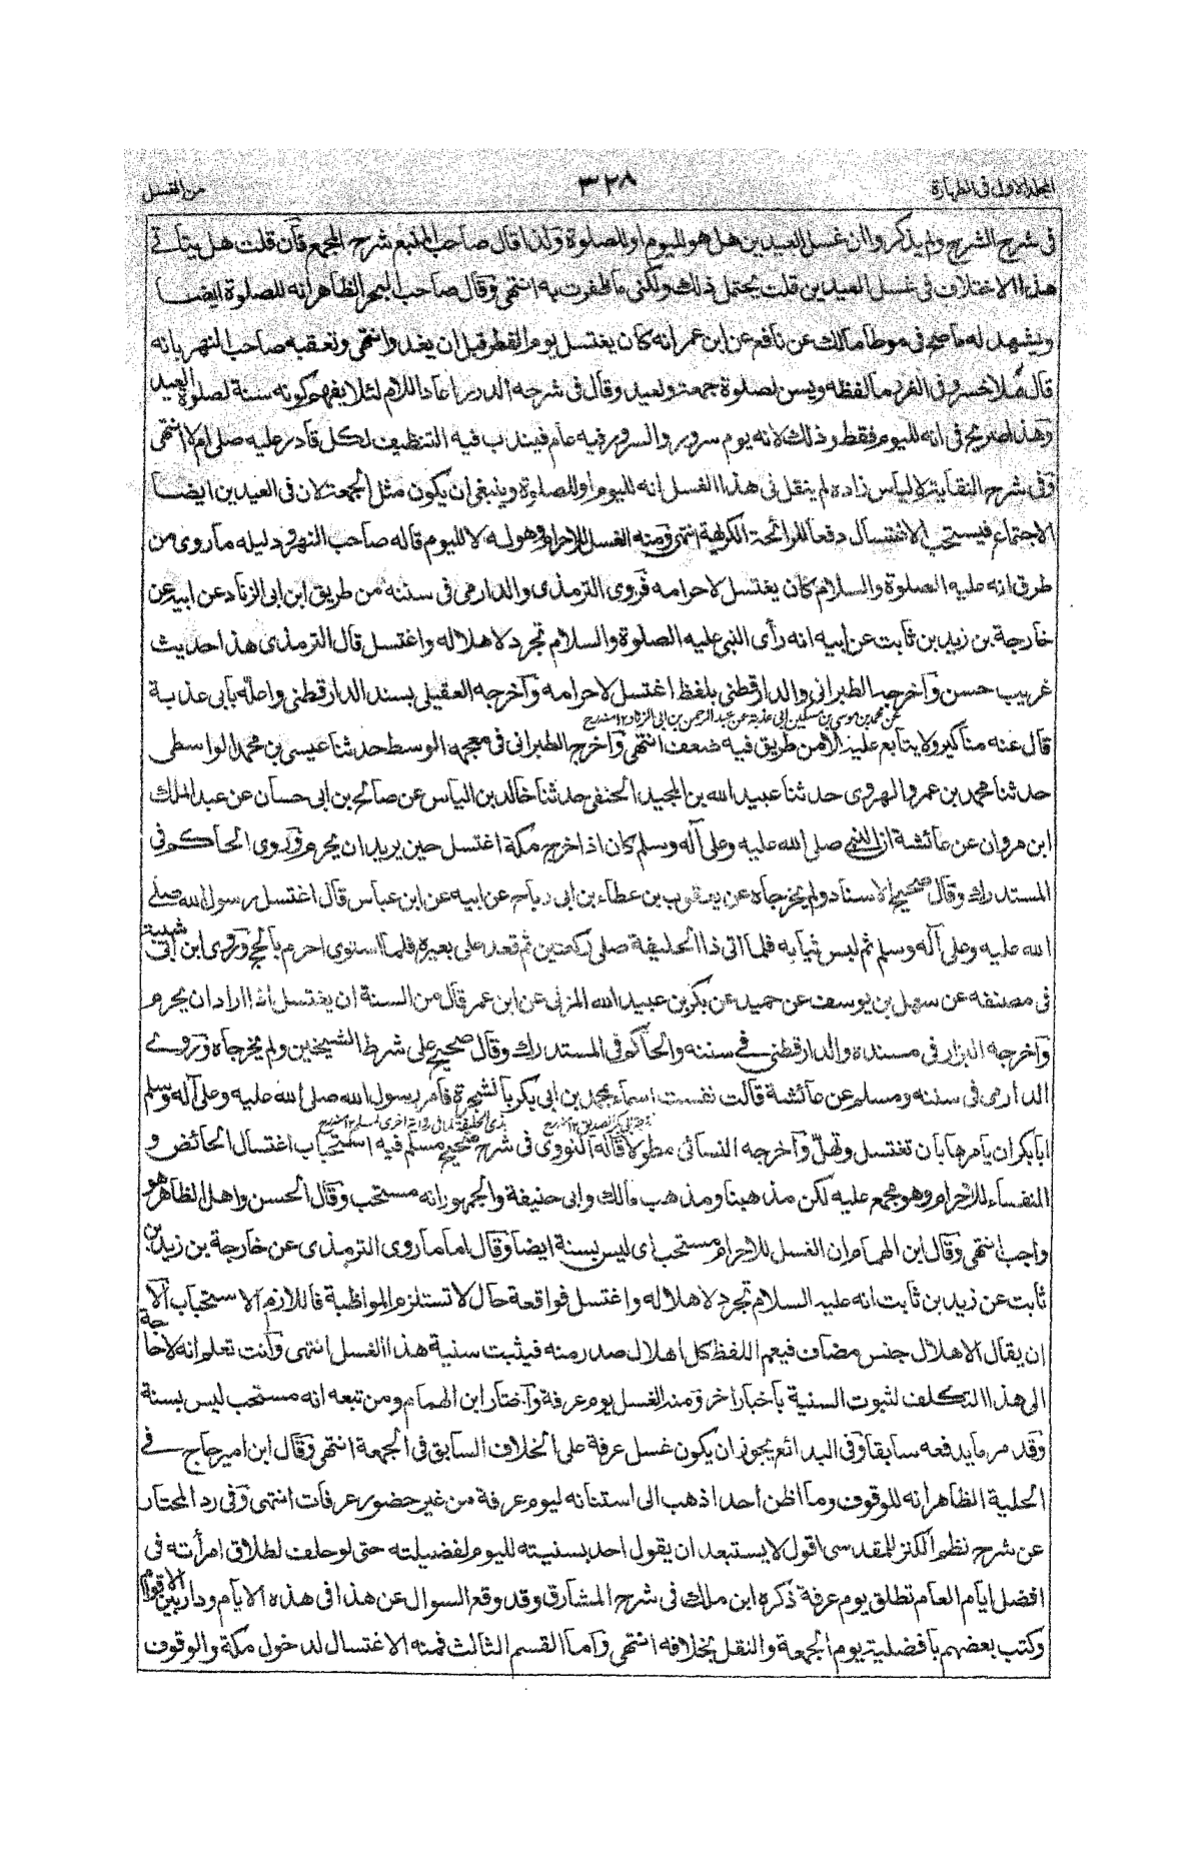 المجلد الاول فى الطهارة ٣٢٨ من الغسل
فى شرح الشرح ولم يذكروا ان غسل العيدين هل هو لليوم او للصلوة ولذا قال صاحب المنبع شرح المجمع فان قلت هل يتأتى
هذا الاختلاف فى غسل العيدين قلت يحتمل ذلك ولكنى ما ظفرت به انتهى وقال صاحب البحر الظاهر انه للصلوة ايضا
ويشهد له ما صح فى موطأ مالك عن نافع عن ابن عمر انه كان يغتسل يوم الفطر قبل ان يغدو انتهى وتعقبه صاحب النهر بانه
قال ملا خسرو فى الغرر ما لفظه ويسن لصلوة جمعة ولعيد وقال فى شرحه الدرر اعاد اللام لئلا يفهم كونه سنة لصلوة العيد
وهذا صريح فى انه لليوم فقط وذلك لانه يوم سرور والسرور فيه عام فيندب فيه التنظيف لكل قادر عليه صلى ام لا انتهى
وفى شرح النقاية لالياس زاده لم ينقل فى هذا الغسل انه لليوم او للصلوة وينبغى ان يكون مثل الجمعة لان فى العيدين ايضا
الاجتماع فيستحب الاغتسال دفعا للرائحة الكريهة انتهى ومنه الغسل للاحرام وهو له لا لليوم قاله صاحب النهر ودليله ما روى من
طرق انه عليه الصلوة والسلام كان يغتسل لاحرامه فروى الترمذى والدارمى فى سننه من طريق ابن ابى الزناد عن ابيه عن
خارجة بن زيد بن ثابت عن ابيه انه رأى النبى عليه الصلوة والسلام تجرد لاهلاله واغتسل قال الترمذى هذا حديث
غريب حسن وآخرجه الطبرانى والدارقطنى بلفظ اغتسل لاحرامه وآخرجه العقيلى بسند الدارقطنى واعله بابى عذبة
عن محمد بن موسى بن مسكين ابى عذبة عن عبد الرحمن بن ابى الزناد ١٢ منه رح
قال عنه مناكير ولا يتابع عليه الا من طريق فيه ضعف انتهى وآخرج الطبرانى فى معجمه الوسط حدثنا عيسى بن محمد الواسطى
حدثنا محمد بن عمرو الهروى حدثنا عبيد الله بن المجيد الحنفى حدثنا خالد بن الياس عن صالح بن ابى حسان عن عبد الملك
ابن مروان عن عائشة ان النبى صلى الله عليه وعلى آله وسلم كان اذا خرج مكة اغتسل حين يريد ان يحرم وروى الحاكم فى
المستدرك وقال صحيح الاسناد ولم يخرجاه عن يعقوب بن عطاء بن ابى رباح عن ابيه عن ابن عباس قال اغتسل رسول الله صلى
الله عليه وعلى آله وسلم ثم لبس ثيابه فلما اتى ذا الحليفة صلى ركعتين ثم قعد على بعيره فلما استوى احرم بالحج وروى ابن ابى شيبة
فى مصنفه عن سهل بن يوسف عن حميد عن بكر بن عبيد الله المزنى عن ابن عمر قال من السنة ان يغتسل اذا اراد ان يحرم
وآخرجه البزار فى مسنده والدارقطنى فى سننه والحاكم فى المستدرك وقال صحيح على شرط الشيخين ولم يخرجاه وروى
الدارمى فى سننه ومسلم عن عائشة قالت نفست اسماء بمحمد بن ابى بكر بالشجرة فامر رسول الله صلى الله عليه وعلى آله وسلم
زوجة ابى بكر الصديق ١٢ منه رح بذى الحليفة كما فى رواية اخرى لمسلم ١٢ منه رح
ابا بكر ان يامرها بان تغتسل وتهل وآخرجه النسائى مطولا قال النووى فى شرح صحيح مسلم فيه استحباب اغتسال الحائض و
النفساء للاحرام وهو مجمع عليه لكن مذهبنا ومذهب مالك وابى حنيفة والجمهور انه مستحب وقال الحسن واهل الظاهر هو
واجب انتهى وقال ابن الهمام ان الغسل للاحرام مستحب اى ليس بسنة ايضا وقال اما ما روى الترمذى عن خارجة بن زيد بن
ثابت عن زيد بن ثابت انه عليه السلام تجرد لاهلاله واغتسل فواقعة حال لا تستلزم المواظبة فاللازم الاستحباب الا
ان يقال الاهلال جنس مضاف فيعم اللفظ كل اهلال صدر منه فيثبت سنية هذا الغسل انتهى وانت تعلم انه لا حاجة
الى هذا التكلف لثبوت السنية باخبار اخر ومنه الغسل يوم عرفة واختار ابن الهمام ومن تبعه انه مستحب ليس بسنة
وقد مر ما يدفعه سابقا وفى البدائع يجوز ان يكون غسل عرفة على الخلاف السابق فى الجمعة انتهى وقال ابن امير حاج فى
الحلية الظاهر انه للوقوف وما اظن احدا ذهب الى استنانه ليوم عرفة من غير حضور عرفات انتهى وفى رد المحتار
عن شرح نظم الكنز للمقدسى اقول لا يستبعد ان يقول احد بسنيته لليوم لفضيلته حتى لو حلف لطلاق امرأته فى
افضل ايام العام تطلق يوم عرفة ذكره ابن ملك فى شرح المشارق وقد وقع السوال عن هذا فى هذه الايام ودار بين الاقوام
وكتب بعضهم بافضلية يوم الجمعة والنقل بخلافه انتهى واما القسم الثالث فمنه الاغتسال لدخول مكة والوقوف